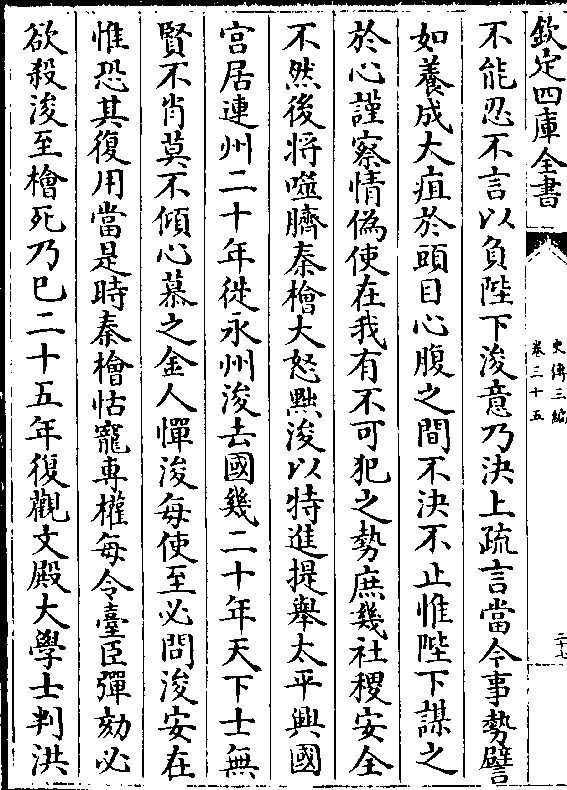 欽定四庫全書
史傳三編
卷三十五
二十七
不能忍不言以負陛下浚意乃決上疏言當今事勢譬
如養成大疽於頭目心腹之間不決不止惟陛下謀之
於心謹察情偽使在我有不可犯之勢庶幾社稷安全
不然後将噬臍秦檜大怒黜浚以特進提舉太平興國
宫居連州二十年徙永州浚去國幾二十年天下士無
賢不肖莫不傾心慕之金人憚浚每使至必問浚安在
惟恐其復用當是時秦檜怙寵專權每令臺臣彈劾必
欲殺浚至檜死乃已二十五年復觀文殿大學士判洪